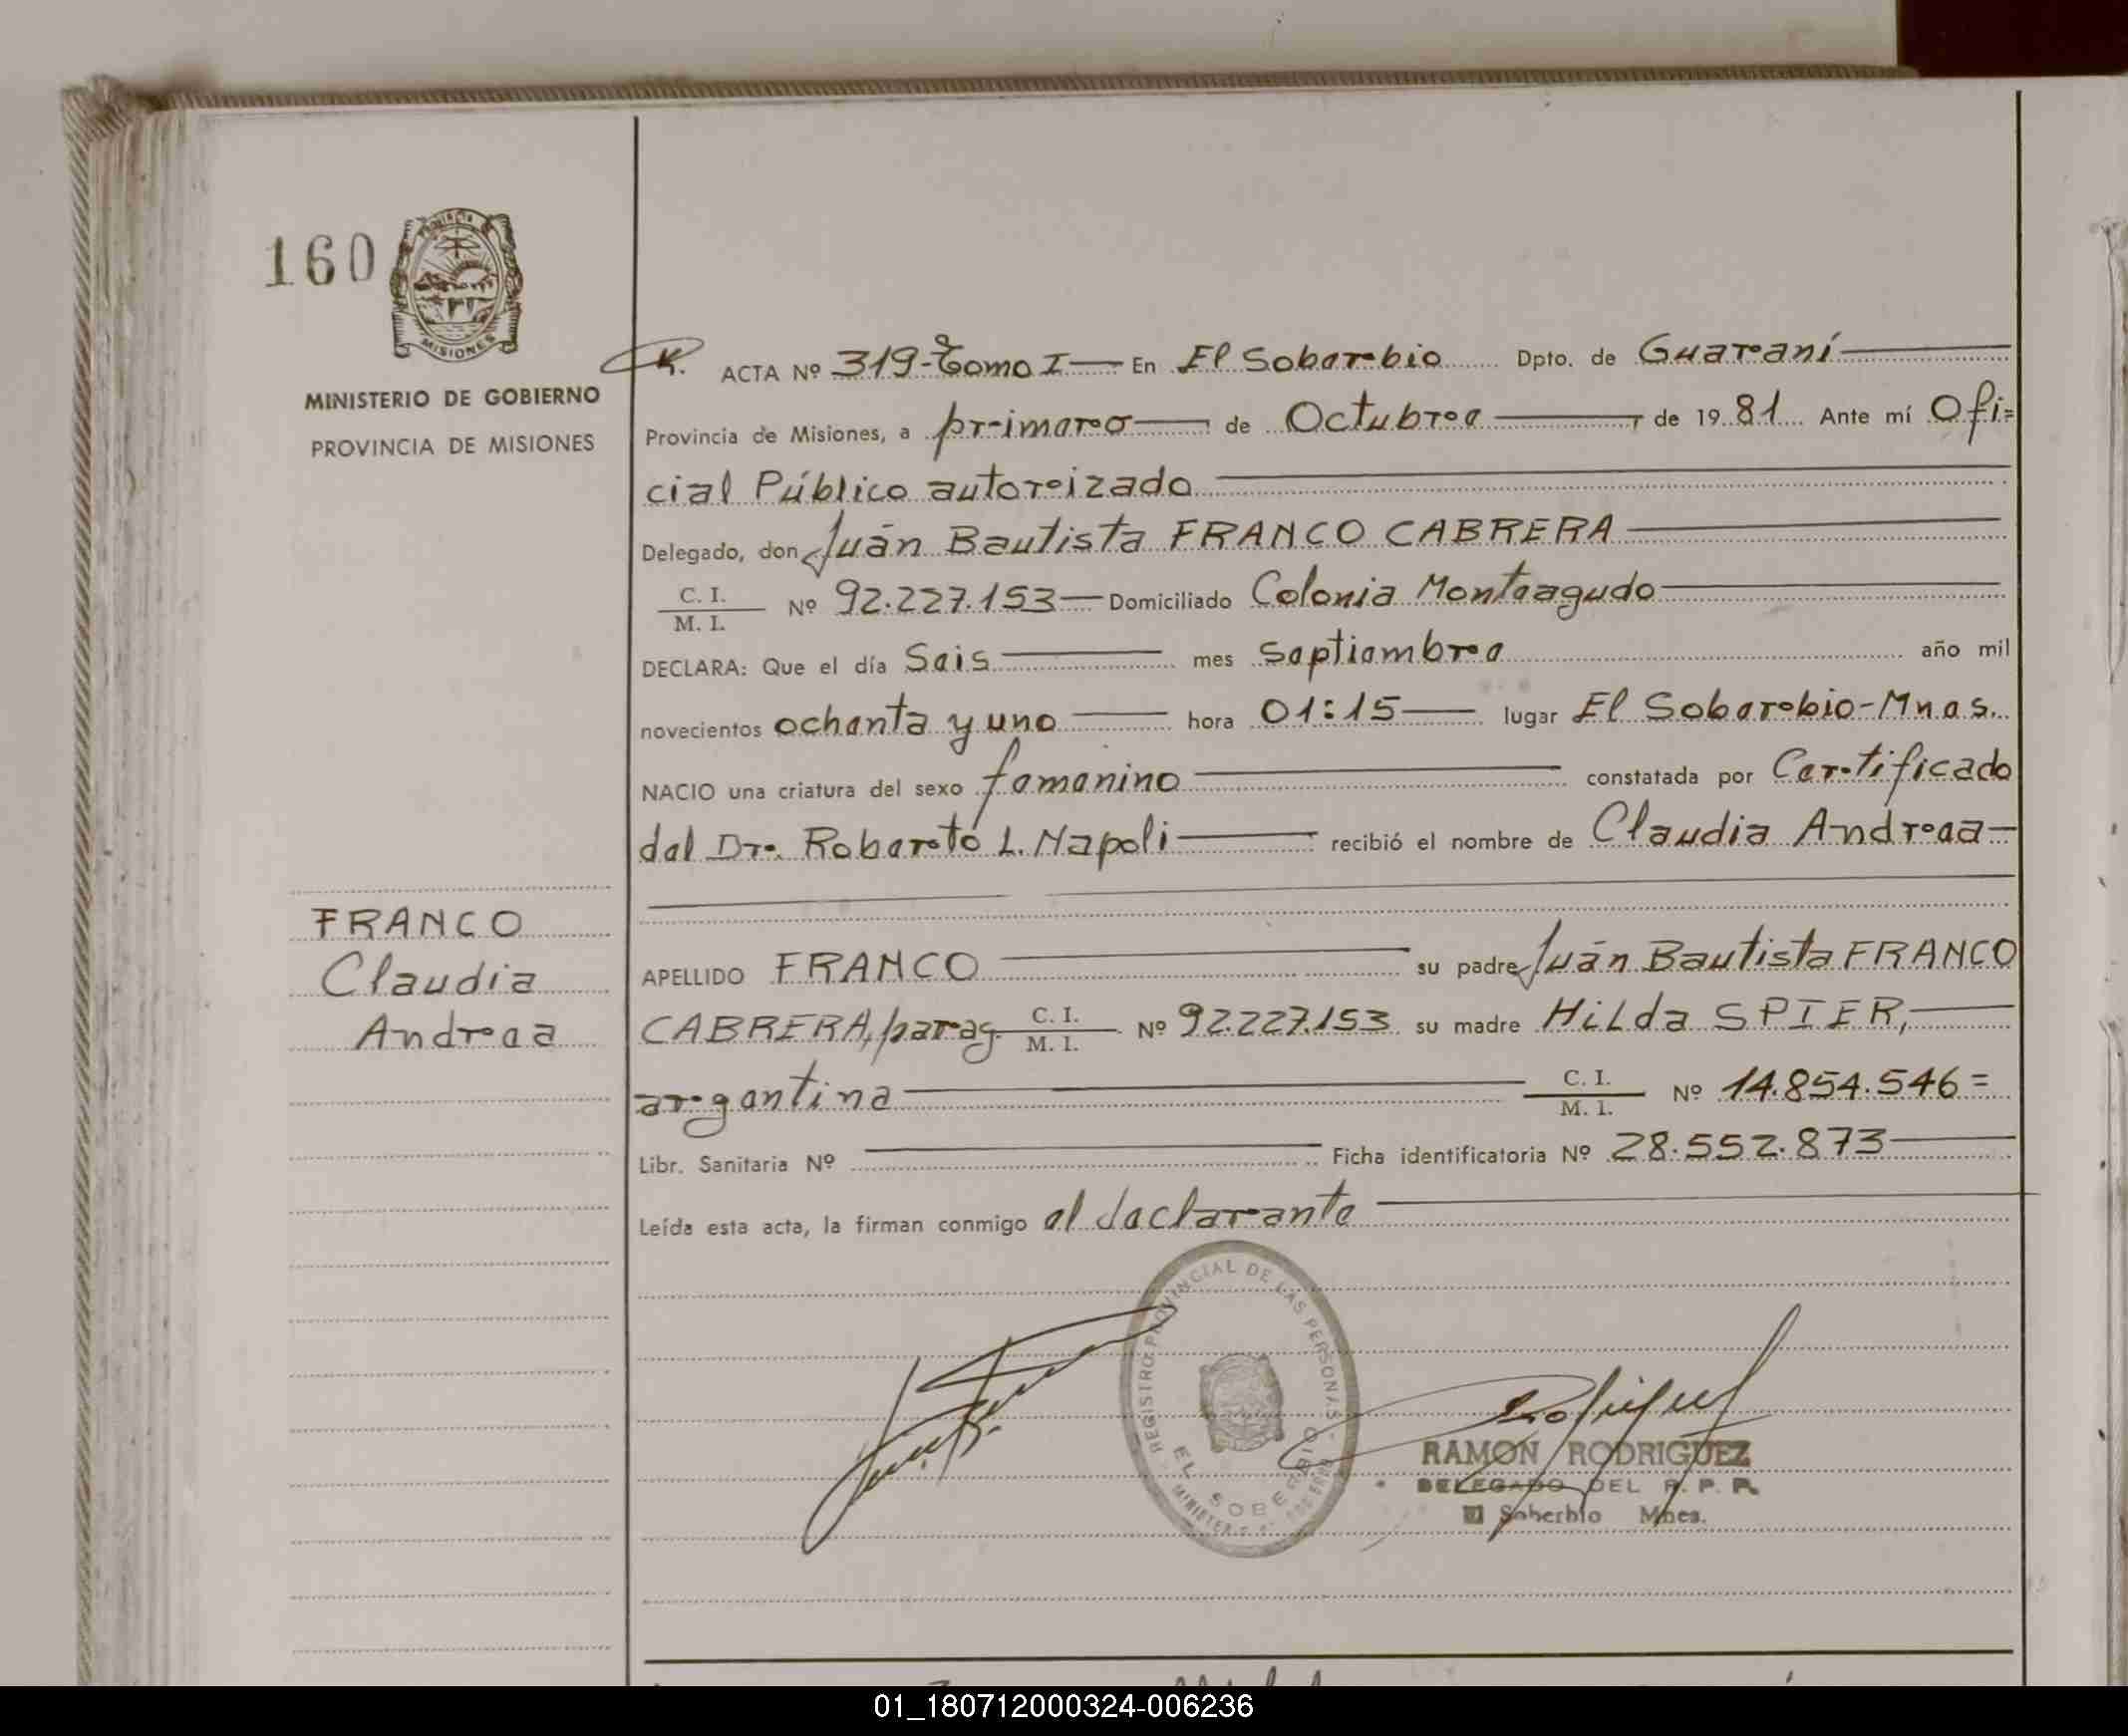 160
PROVINCIA
MISIONES
MINISTERIO DE GOBIERNO
PROVINCIA DE MISIONES
ACTA Nº 319-Tomo I — En El Soberbio Dpto. de Guaraní
Provincia de Misiones, a primero de Octubre de 1981 Ante mí Ofi=
cial Público autorizado
Delegado, don Juán Bautista FRANCO CABRERA
C. I.
M. I.
Nº 92.227.153 — Domiciliado Colonia Monteagudo
DECLARA: Que el día Seis mes Septiembre año mil
novecientos ochenta y uno hora 01:15 lugar El Soberbio-Mnes.
NACIO una criatura del sexo femenino constatada por Certificado
del Dr. Roberto L. Napoli recibió el nombre de Claudia Andrea
FRANCO
Claudia
Andrea
APELLIDO FRANCO su padre Juán Bautista FRANCO
CABRERA, parag. C. I. M. I. Nº 92.227.153 su madre HiLda SPIER,
argentina C. I. M. I. Nº 14.854.546=
Libr. Sanitaria Nº Ficha identificatoria Nº 28.552.873
Leída esta acta, la firman conmigo el declarante
REGISTRO PROVINCIAL DE LAS PERSONAS
EL SOBERBIO
RAMON RODRIGUEZ
DELEGADO DEL R. P. P.
El Soberbio Mnes.
01_180712000324-006236